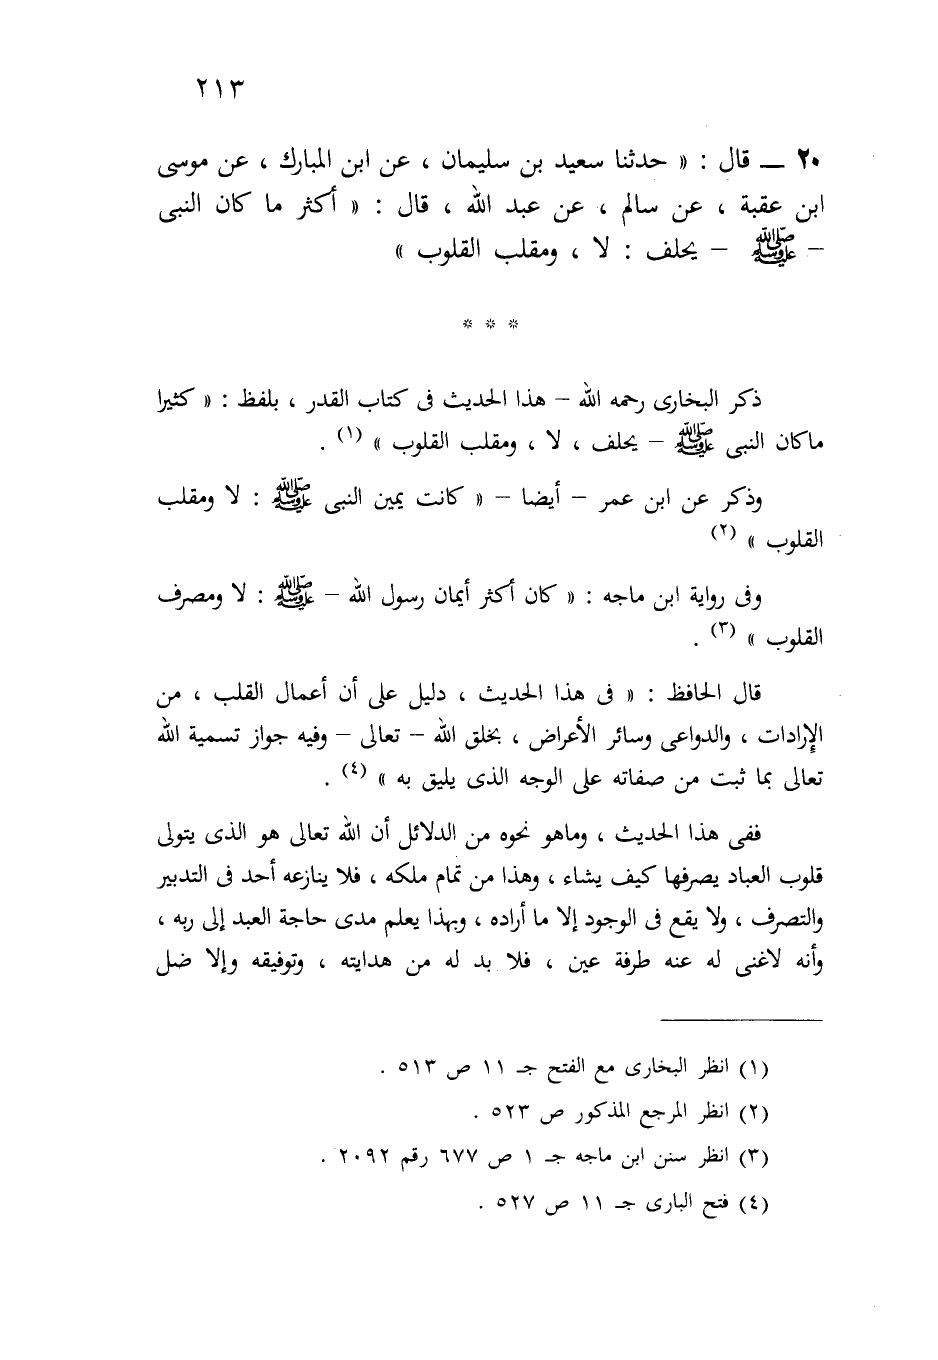 ٢١٣
٢٠ ــ قال : « حدثنا سعيد بن سليمان ، عن ابن المبارك ، عن موسى
ابن عقبة ، عن سالم ، عن عبد الله ، قال : « أكثر ما كان النبى
– ﷺ – يحلف : لا ، ومقلب القلوب »
* * *
ذكر البخارى رحمه الله – هذا الحديث فى كتاب القدر ، بلفظ : « كثيرا
ماكان النبى ﷺ – يحلف ، لا ، ومقلب القلوب » (١) .
وذكر عن ابن عمر – أيضا – « كانت يمين النبى ﷺ : لا ومقلب
القلوب » (٢)
وفى رواية ابن ماجه : « كان أكثر أيمان رسول الله – ﷺ : لا ومصرف
القلوب » (٣) .
قال الحافظ : « فى هذا الحديث ، دليل على أن أعمال القلب ، من
الإرادات ، والدواعى وسائر الأعراض ، بخلق الله – تعالى – وفيه جواز تسمية الله
تعالى بما ثبت من صفاته على الوجه الذى يليق به » (٤) .
ففى هذا الحديث ، وماهو نحوه من الدلائل أن الله تعالى هو الذى يتولى
قلوب العباد يصرفها كيف يشاء ، وهذا من تمام ملكه ، فلا ينازعه أحد فى التدبير
والتصرف ، ولا يقع فى الوجود إلا ما أراده ، وبهذا يعلم مدى حاجة العبد إلى ربه ،
وأنه لاغنى له عنه طرفة عين ، فلا بد له من هدايته ، وتوفيقه وإلا ضل
(١) انظر البخارى مع الفتح جـ ١١ ص ٥١٣ .
(٢) انظر المرجع المذكور ص ٥٢٣ .
(٣) انظر سنن ابن ماجه جـ ١ ص ٦٧٧ رقم ٢٠٩٢ .
(٤) فتح البارى جـ ١١ ص ٥٢٧ .